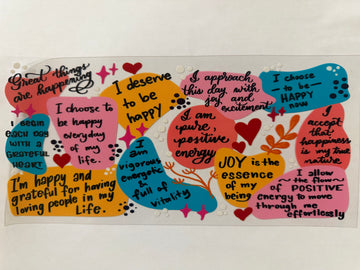 Great things
are happening
I deserve
to be
happy
I approach
this day with
joy and
excitement
I choose
to be
HAPPY
now
I choose to
be happy
everyday
of my
life.
I BEGIN
EACH DAY
WITH A
GRATEFUL
HEART
I am
pure,
positive
energy
I
accept
that
happiness
is my true
nature
I
am
vigorous
energetic
&
full of
vitality
JOY is the
essence
of my
being
I'm happy and
grateful for having
loving people in my
Life.
I allow
the flow
of POSITIVE
energy to move
through me
effortlessly